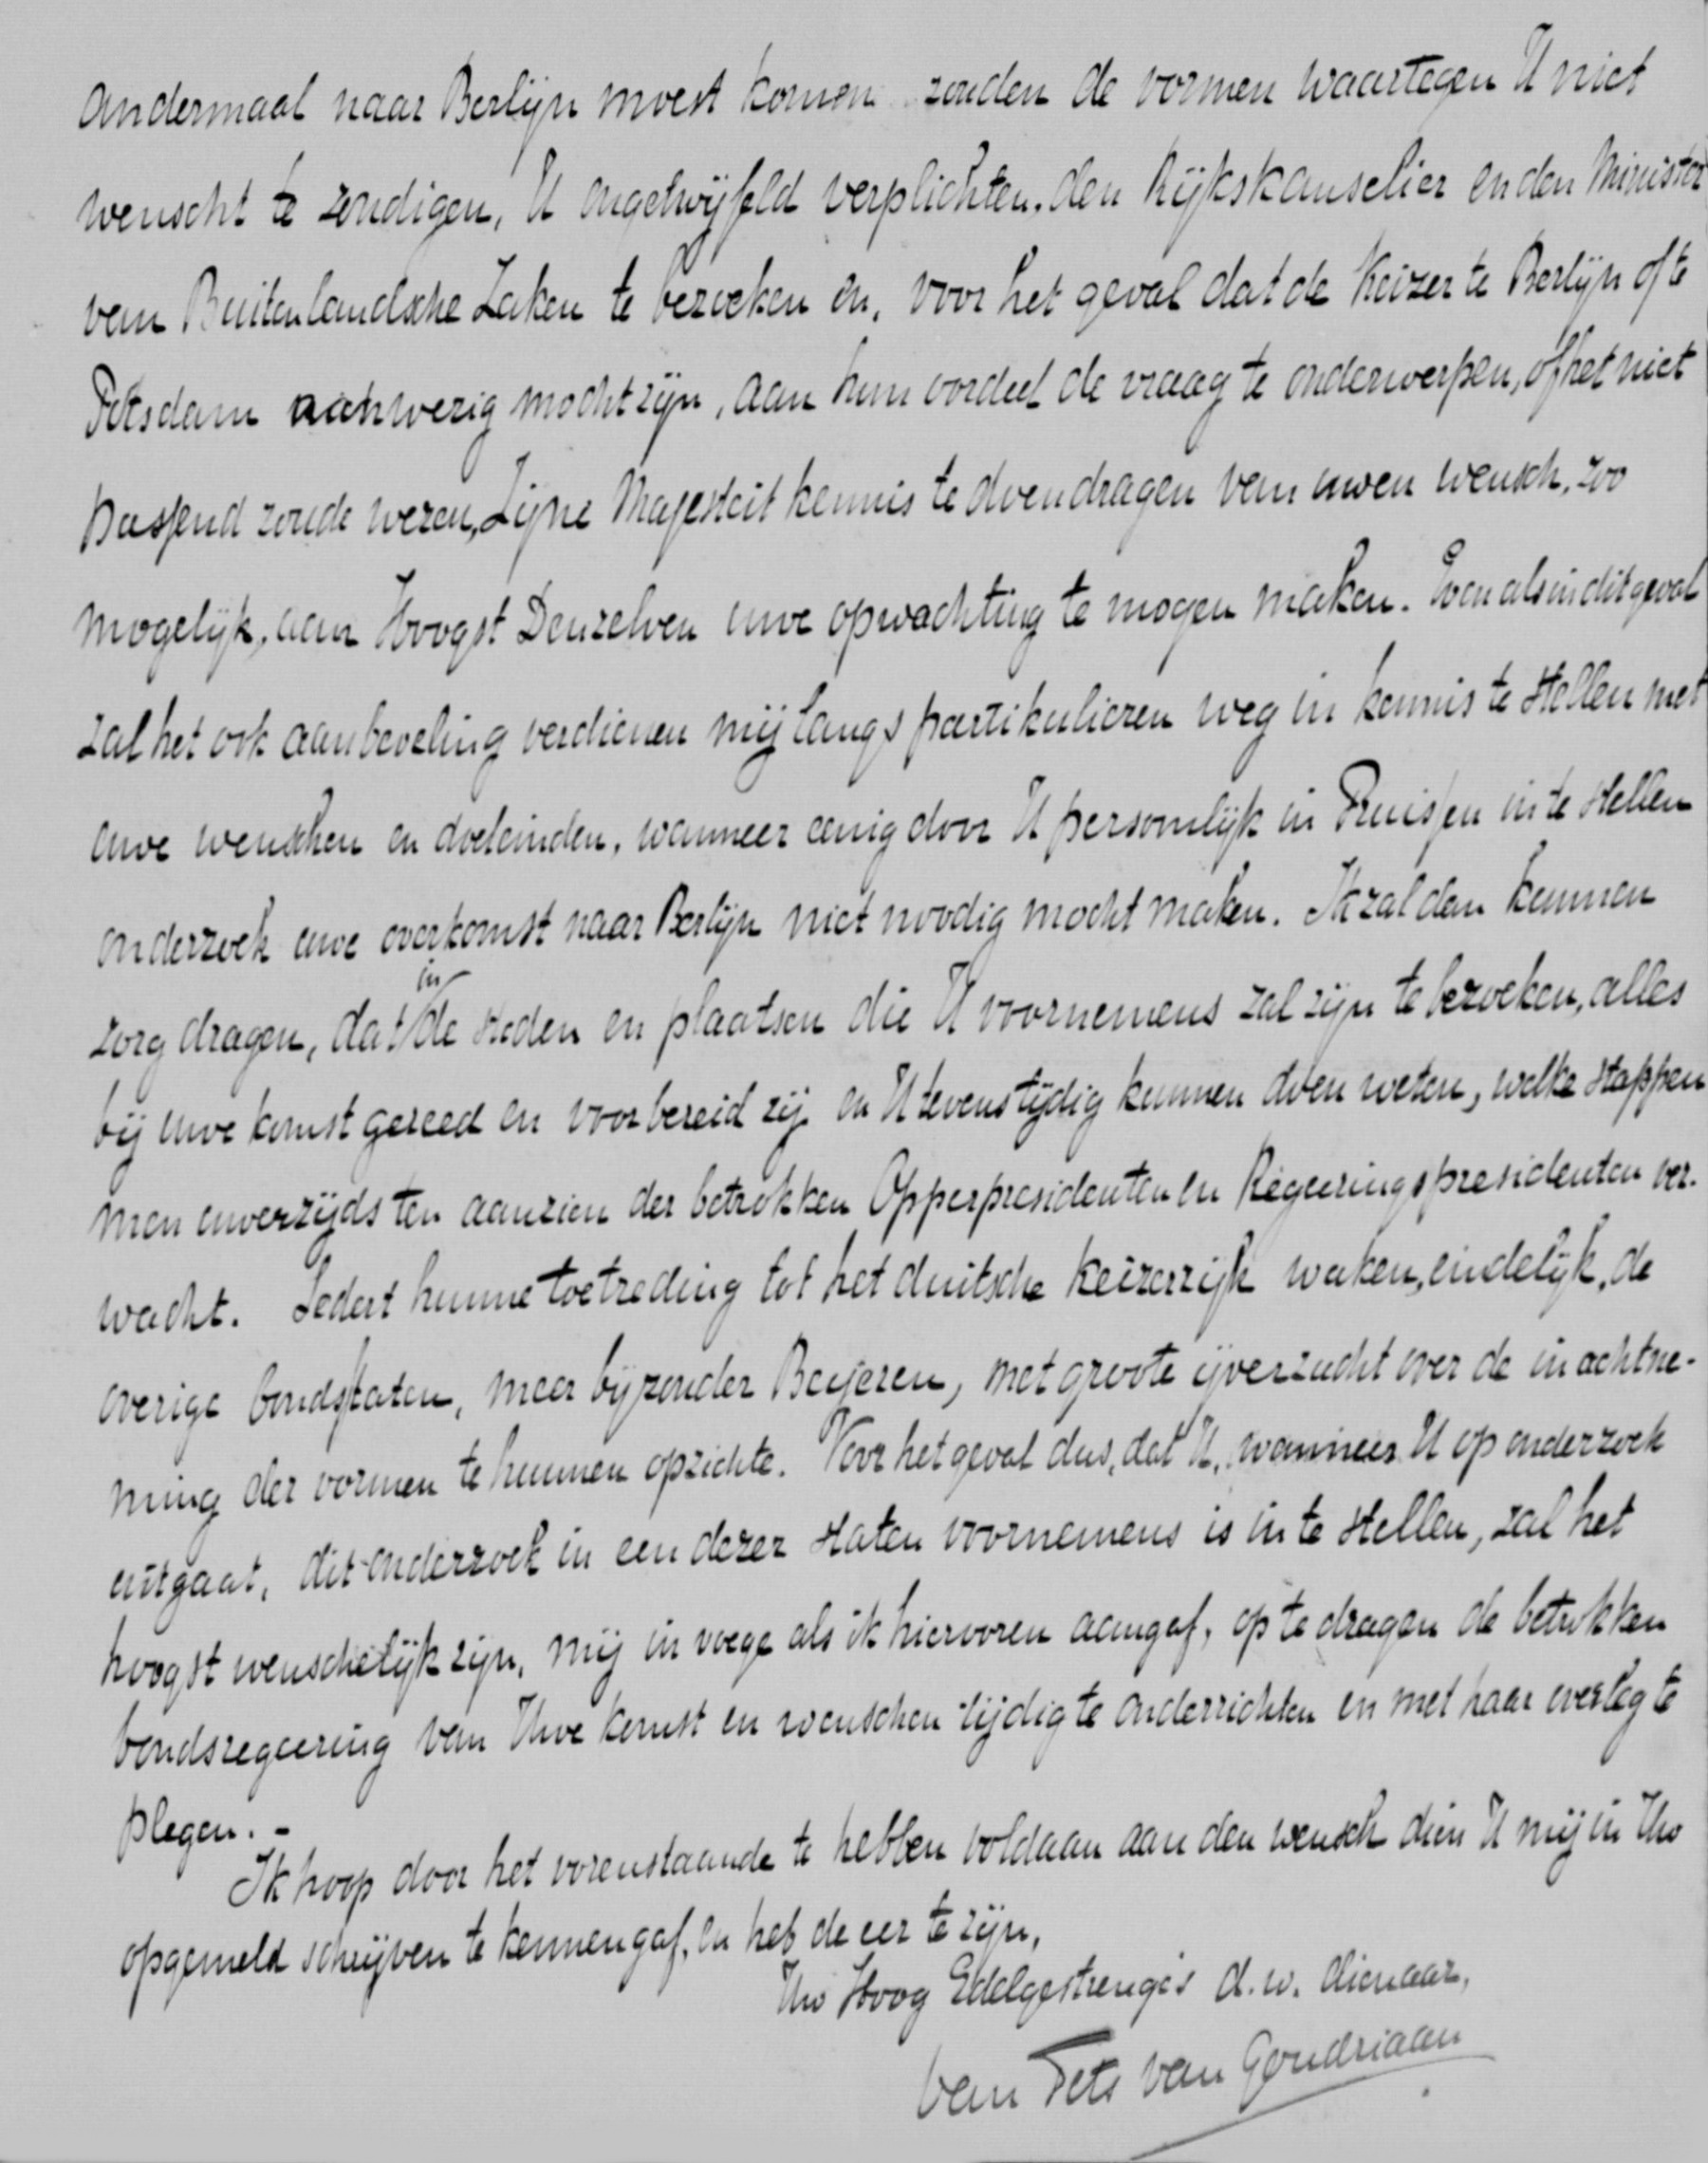 andermaal naar Berlijn moest komen zouden de vormen waartegen U niet
wenscht te zondigen, U ongetwijfeld verplichten, den Rijkskanselier en den Minister
van Buitenlandsche Zaken te bezoeken en, voor het geval dat de Keizer te Berlijn of te
Potsdam aanwezig mocht zijn, aan hun oordeel de vraag te onderwerpen, of het niet
passend zoude wezen, Zijne Majesteit kennis te doen dragen van uwen wensch, zoo
mogelijk, aan Hoogst Denzelven uwe opwachting te mogen maken. Evenals in dit geval
zal het ook aanbeveling verdienen mij langs partikulieren weg in kennis te stellen met
uwe wenschen en doeleinden, wanneer eenig door U persoonlijk in Pruissen in te stellen
onderzoek uwe overkomst naar Berlijn niet noodig mocht maken. Ik zal dan kunnen
zorg dragen, dat in de steden en plaatsen die U voornemens zal zijn te bezoeken, alles
bij uwe komst gereed en voorbereid zij en U tevens tijdig kunnen doen weten, welke stappen
men uwerzijds ten aanzien der betrokken Opperpresidenten en Regeeringspresidenten ver-
wacht. Sedert hunne toetreding tot het duitsche keizerrijk waken, eindelijk, de
overige bondsstaten, meer bijzonder Beijeren, met groote ijverzucht over de inachtne-
ming der vormen te hunnen opzichte. Voor het geval dus, dat U, wanneer U op onderzoek
uitgaat, dit onderzoek in een dezer staten voornemens is in te stellen, zal het
hoogst wenschelijk zijn, mij in voege als ik hiervoren aangaf, op te dragen de betrokken
bondsregeering van Uwe komst en wenschen tijdig te onderrichten en met haar overleg te
plegen. -
Ik hoop door het vorenstaande te hebben voldaan aan den wensch dien U mij in Uw
opgemeld schrijven te kennen gaf, en heb de eer te zijn,
Uw Hoog Edelgestrenge's d.w. dienaar,
van Tets van Goudriaan